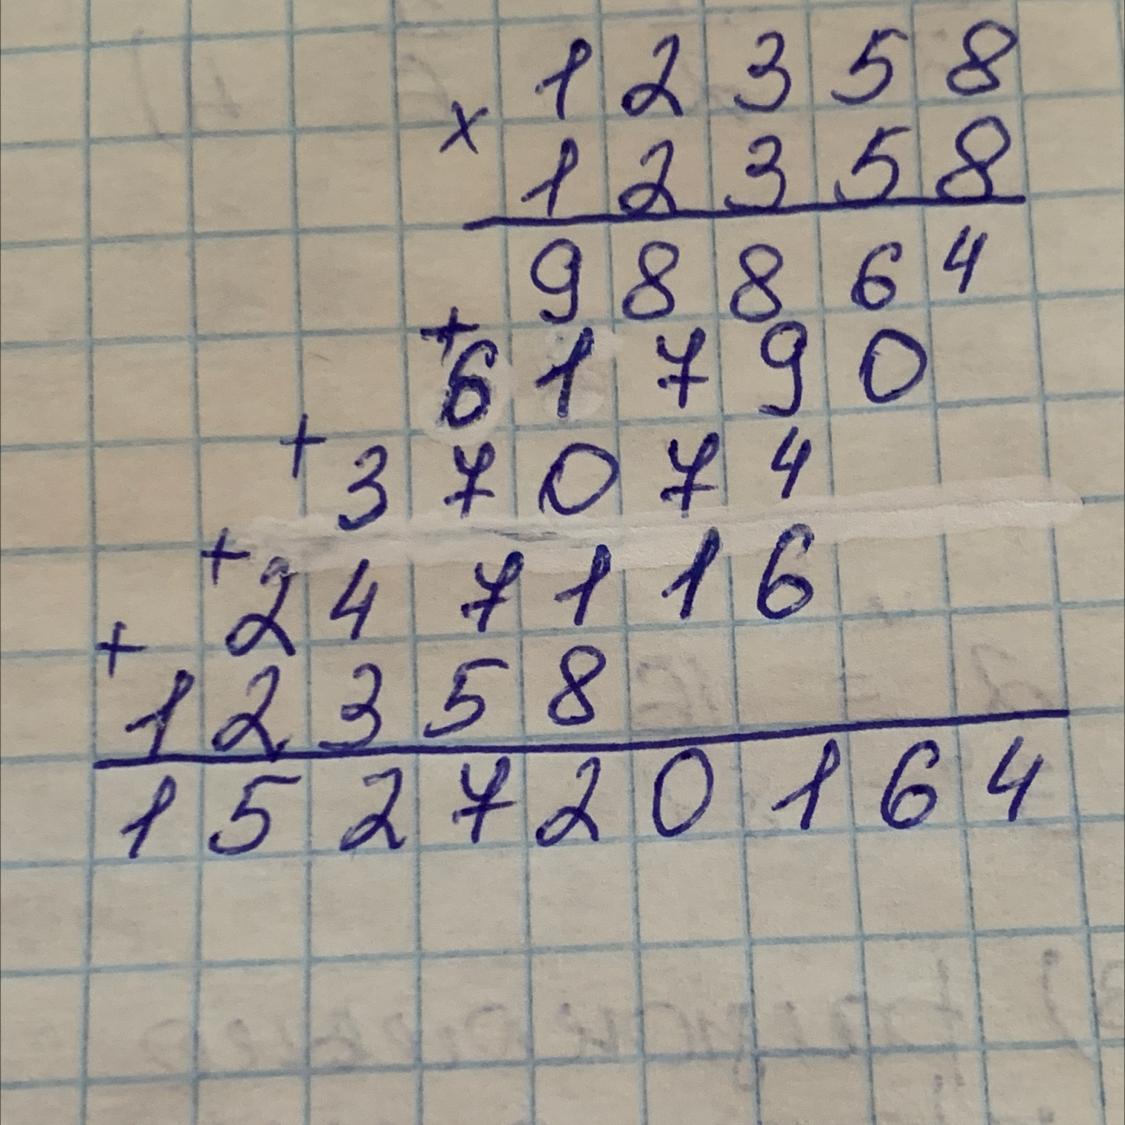 12358
×
12358
98864
+
61790
+
37074
+
247116
+
12358
152720164